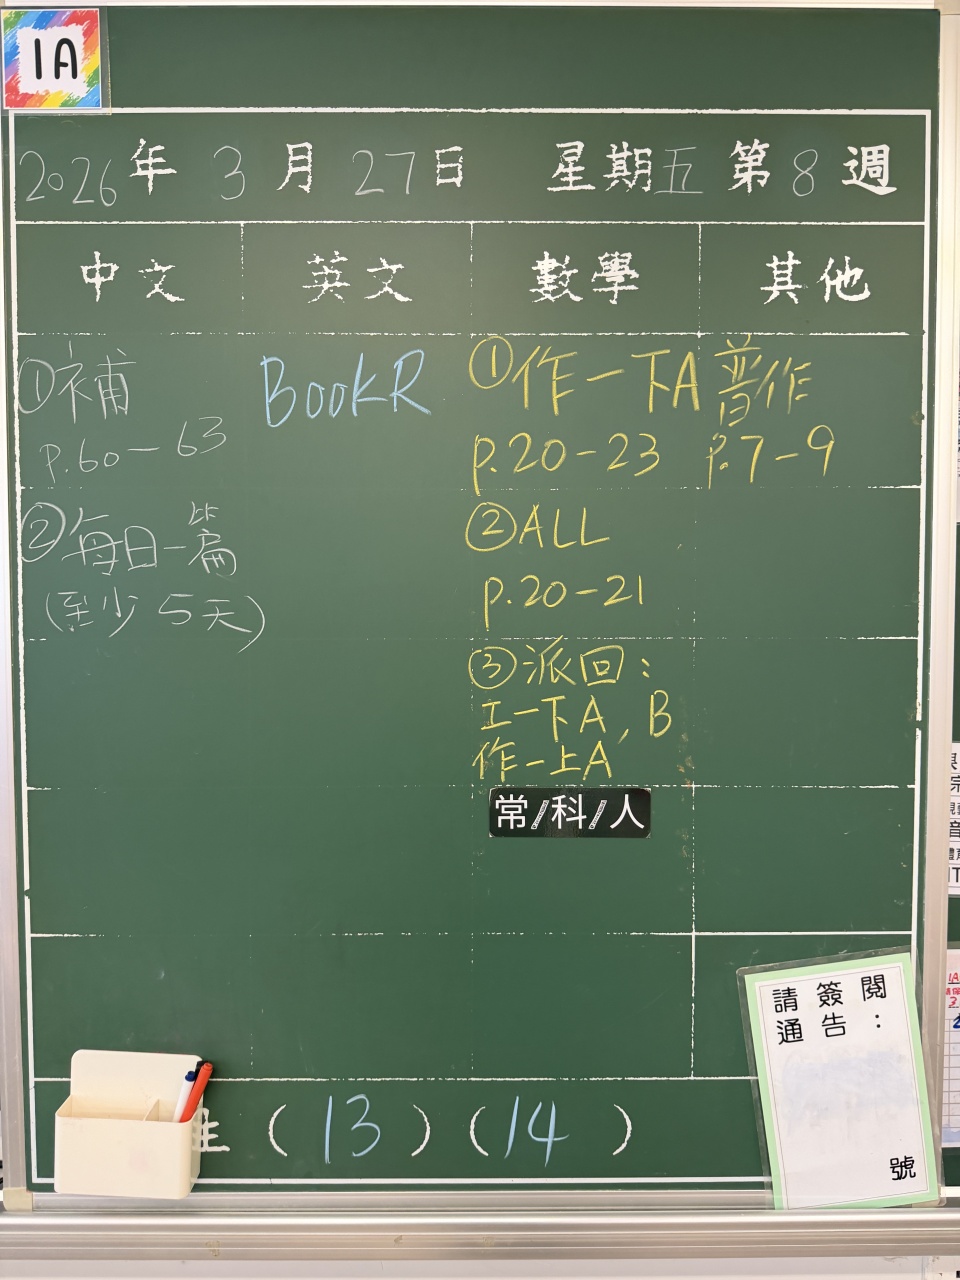 1A
2026年 3月 27日 星期五 第8週
中文 英文 數學 其他
①補
p.60-63
②每日一篇
(至少5天)
BookR
①作一下A
p.20-23
②ALL
p.20-21
③派回:
工一下A, B
作一上A
常/科/人
普作
p.7-9
生 (13) (14)
請簽閱
通告:
號